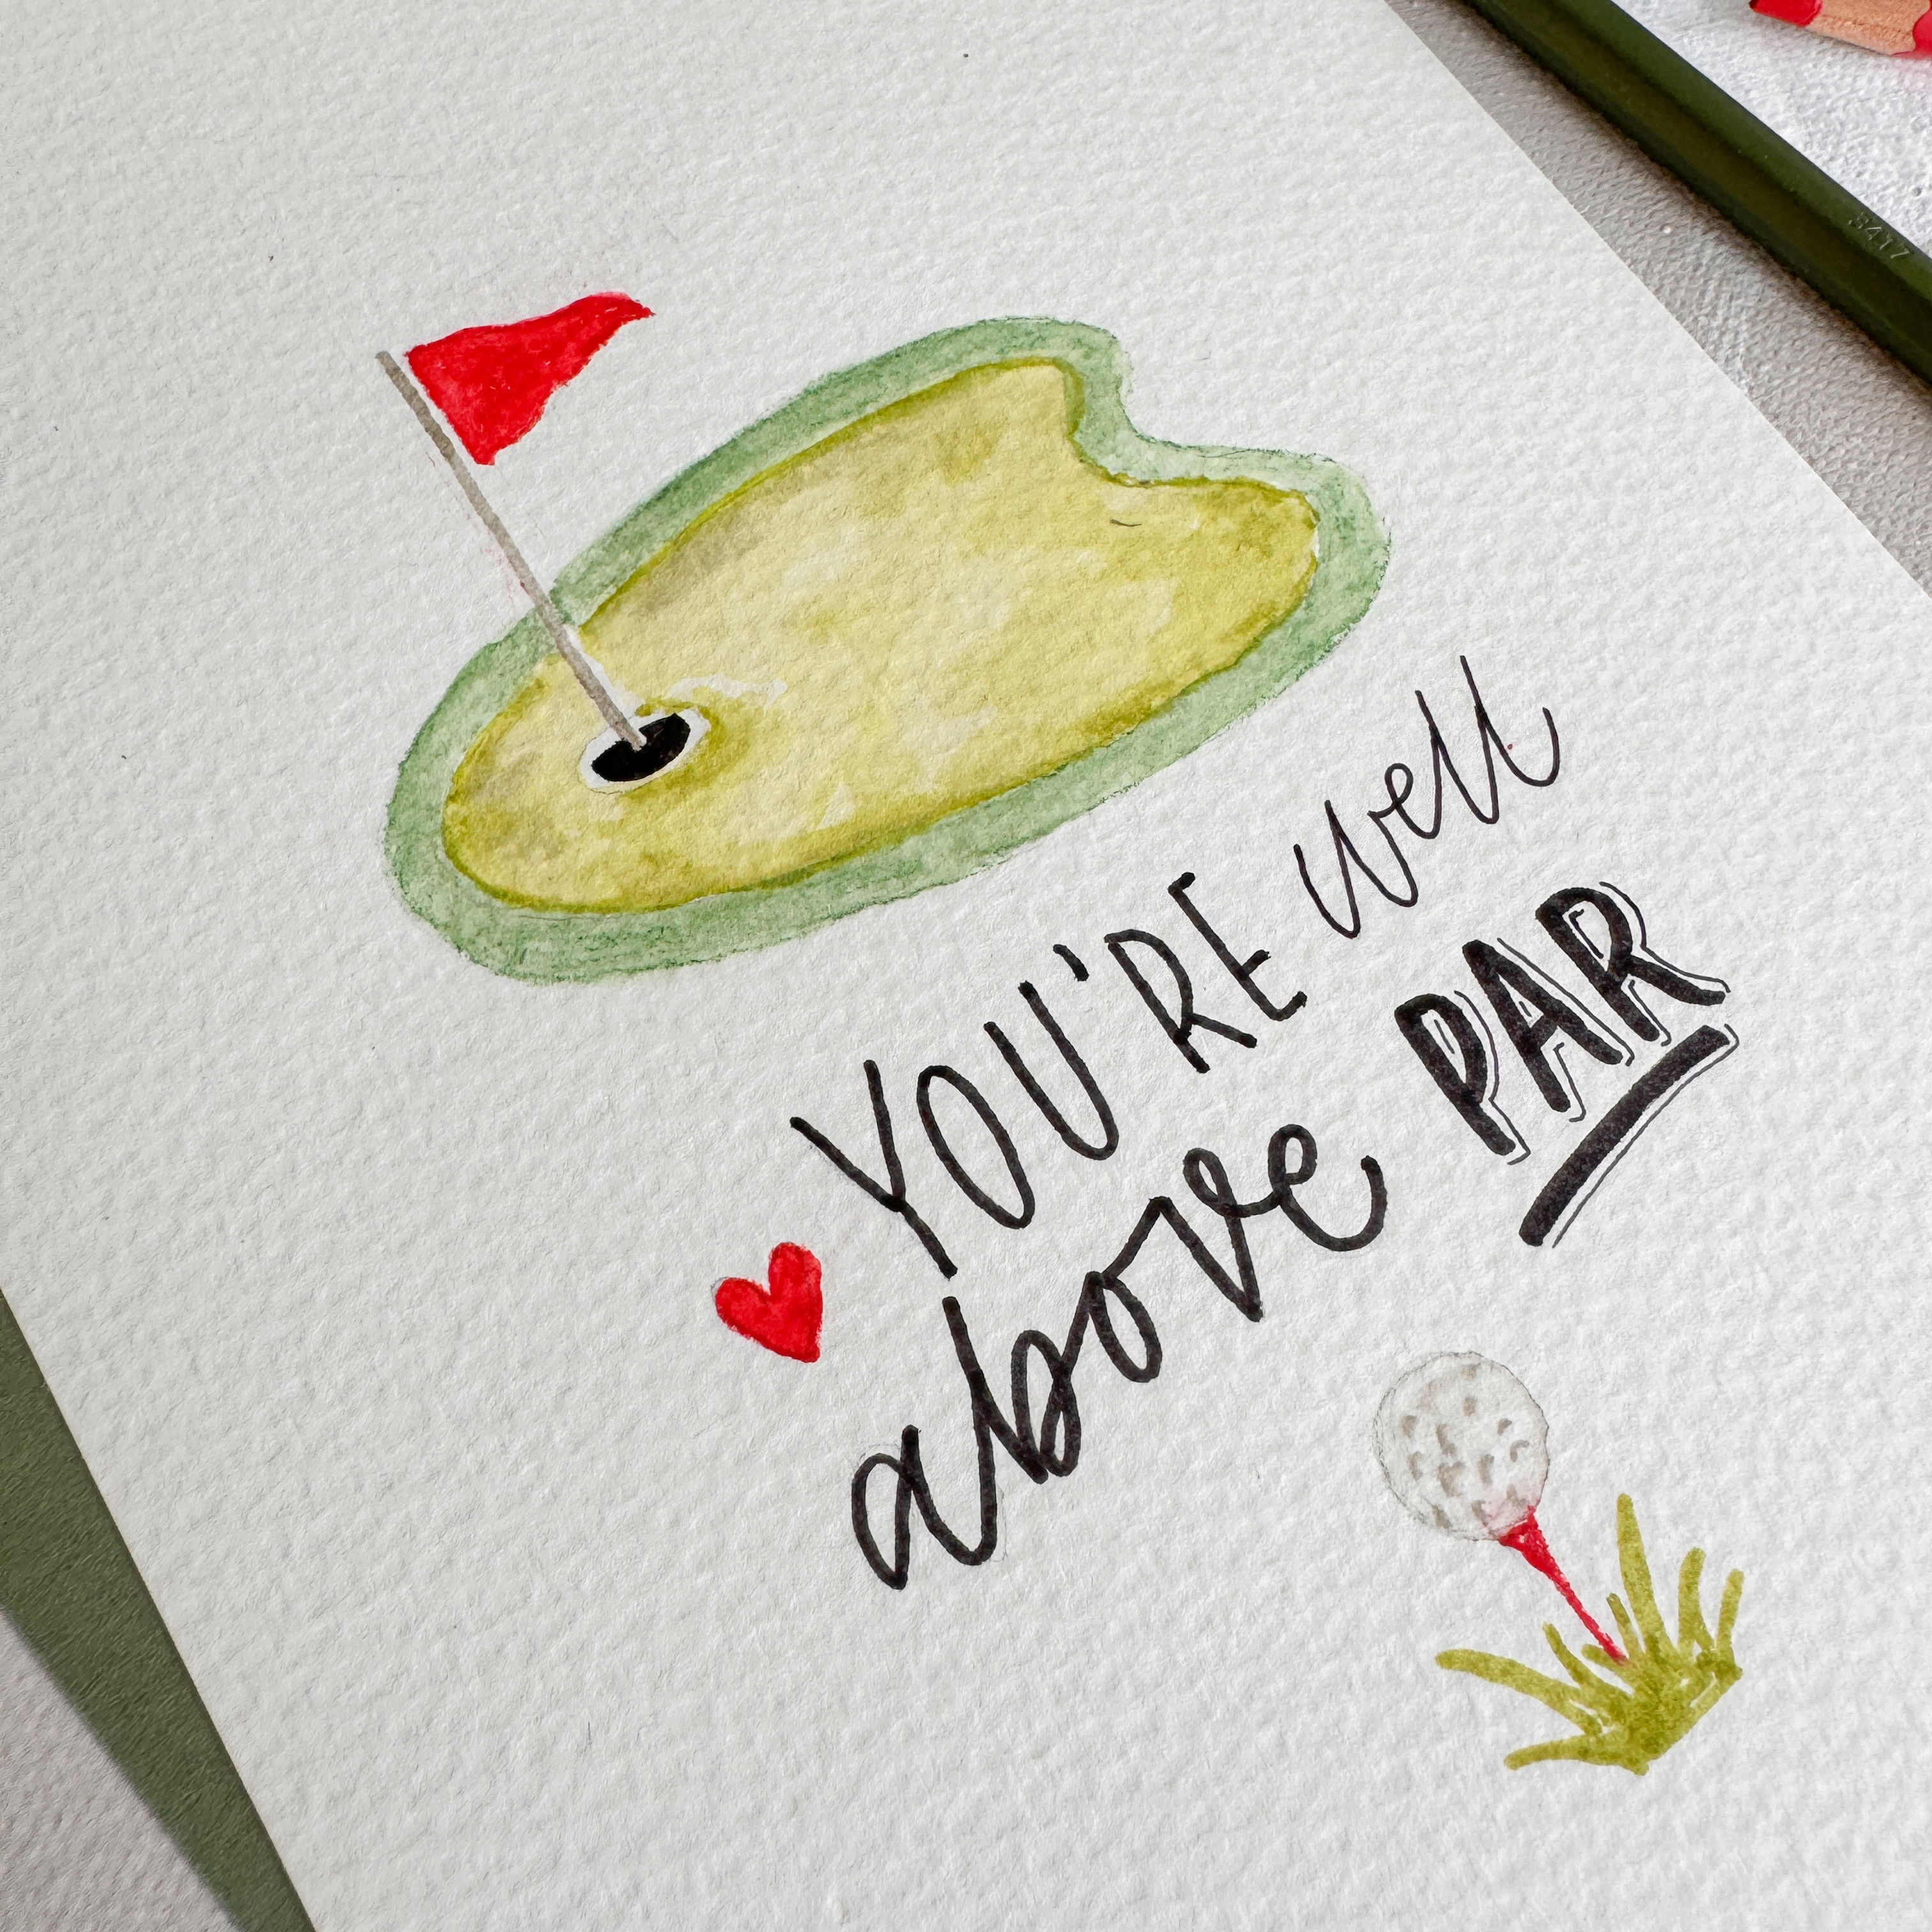 YOU'RE well
above PAR
8417